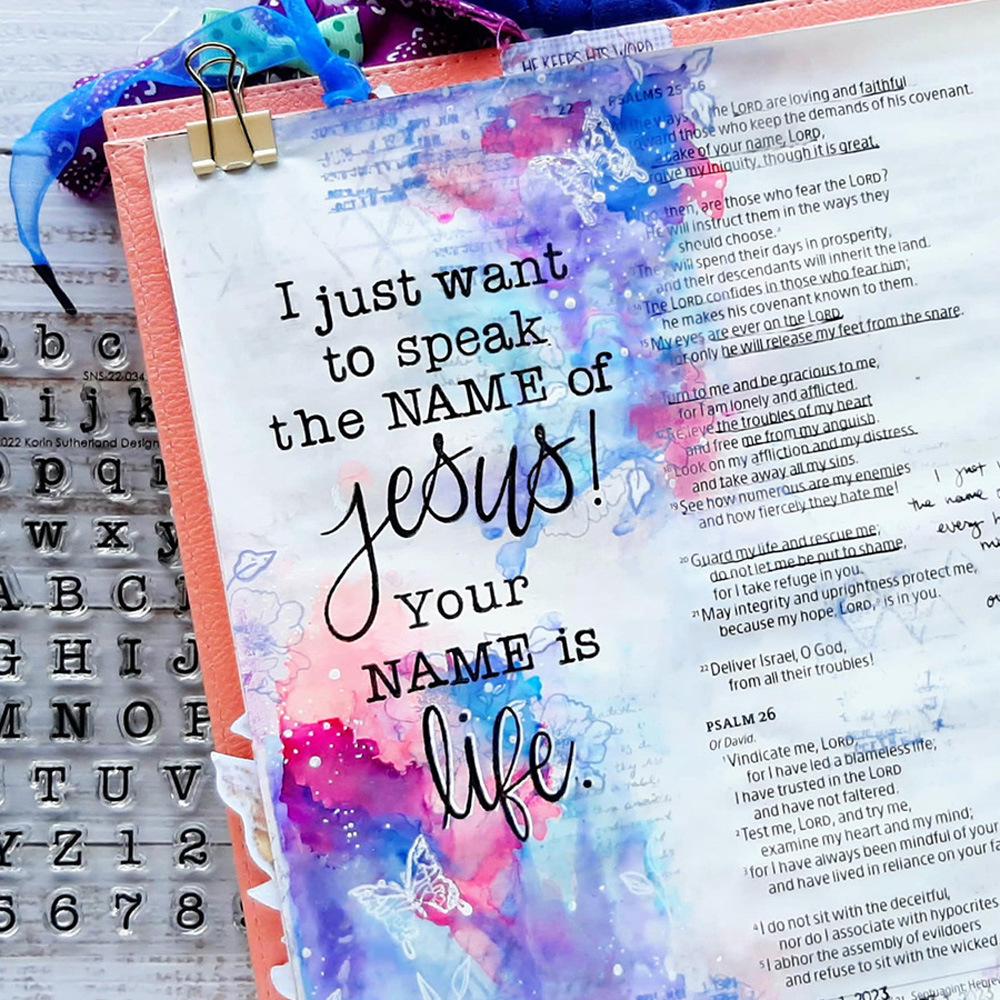 HE KEEPS HIS
22 PSALMS 25-26
the LORD are loving and faithful
those who keep the demands of his covenant.
sake of your name, LORD,
my iniquity, though it is great.
then, are those who fear the LORD?
He will instruct them in the ways they
should choose.
They will spend their days in prosperity,
and their descendants will inherit the land.
The LORD confides in those who fear him;
he makes his covenant known to them.
15 My eyes are ever on the LORD,
for only he will release my feet from the snare.
Turn to me and be gracious to me,
for I am lonely and afflicted.
Relieve the troubles of my heart
and free me from my anguish.
Look on my affliction and my distress
and take away all my sins.
19 See how numerous are my enemies
and how fiercely they hate me!
20 Guard my life and rescue me;
do not let me be put to shame,
for I take refuge in you.
21 May integrity and uprightness protect me,
because my hope, LORD, is in you.
22 Deliver Israel, O God,
from all their troubles!
PSALM 26
Of David.
1 Vindicate me, LORD,
for I have led a blameless life;
I have trusted in the LORD
and have not faltered.
2 Test me, LORD, and try me,
examine my heart and my mind;
3 for I have always been mindful of your
and have lived in reliance on your
4 I do not sit with the deceitful,
nor do I associate with hypocrites
5 I abhor the assembly of evildoers
and refuse to sit with the wicked
2023
Septuagint;
I just want
to speak
the NAME of
jesus!
Your
NAME is
life.
I just
the name
every
b c
SNS-22-034
i j k
2022 Korin Sutherland Design
p q r
w x y
A B C
G H I J
M N O P
T U V
Y Z 1 2
5 6 7 8